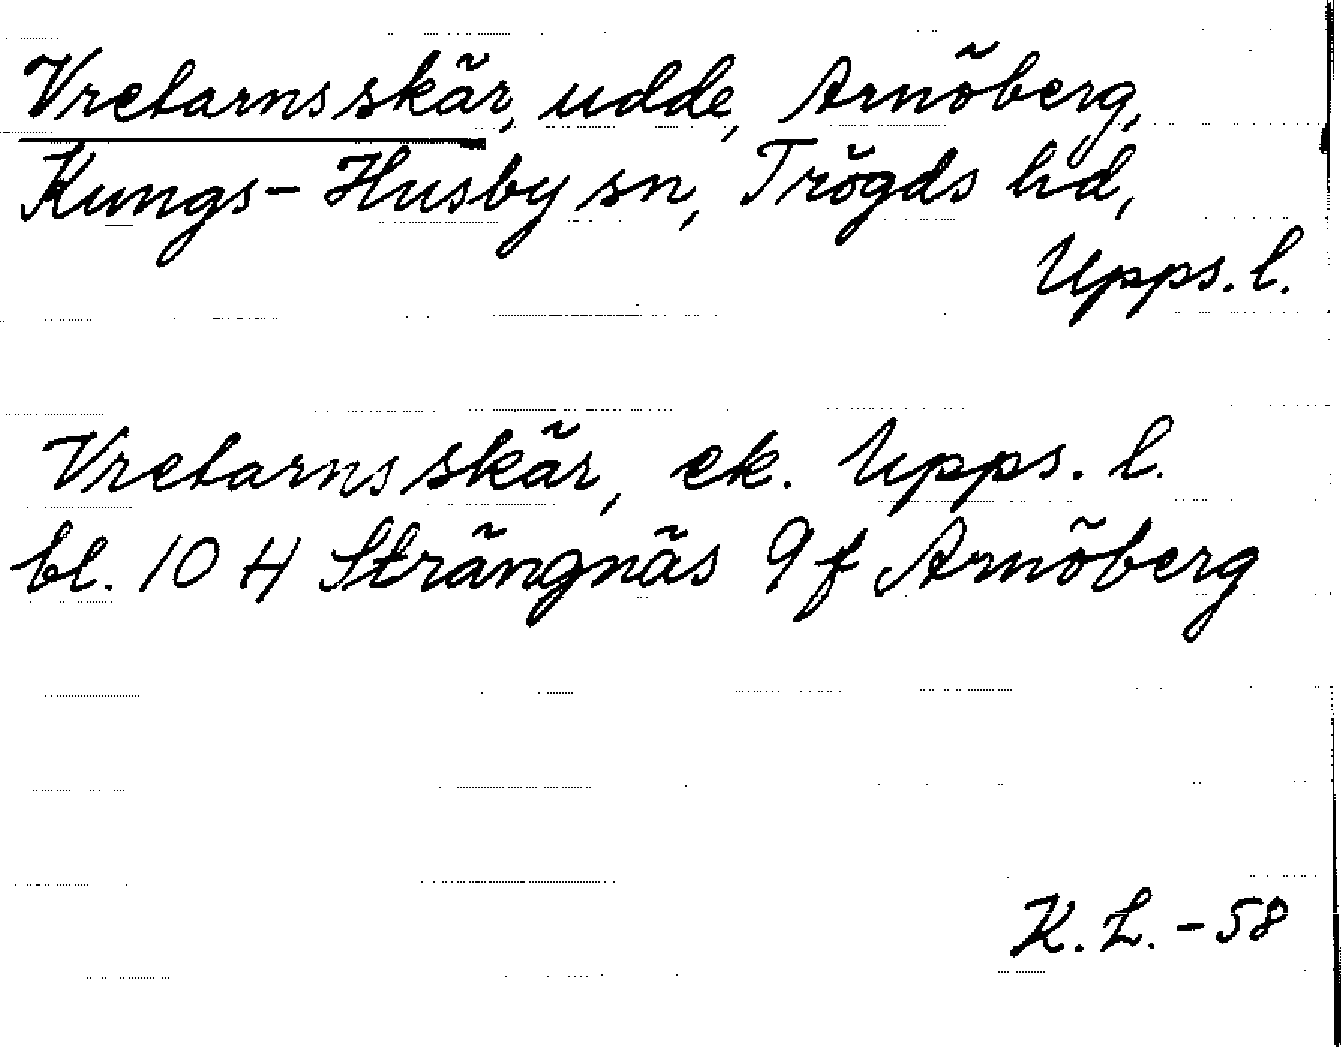 Vretarnsskär, udde, Arnöberg,
Kungs-Husby sn, Trögds hd,
Upps. l.
Vretarnsskär, ek. Upps. l.
bl. 10 H Strängnäs 9 f Arnöberg
K. L. - 58